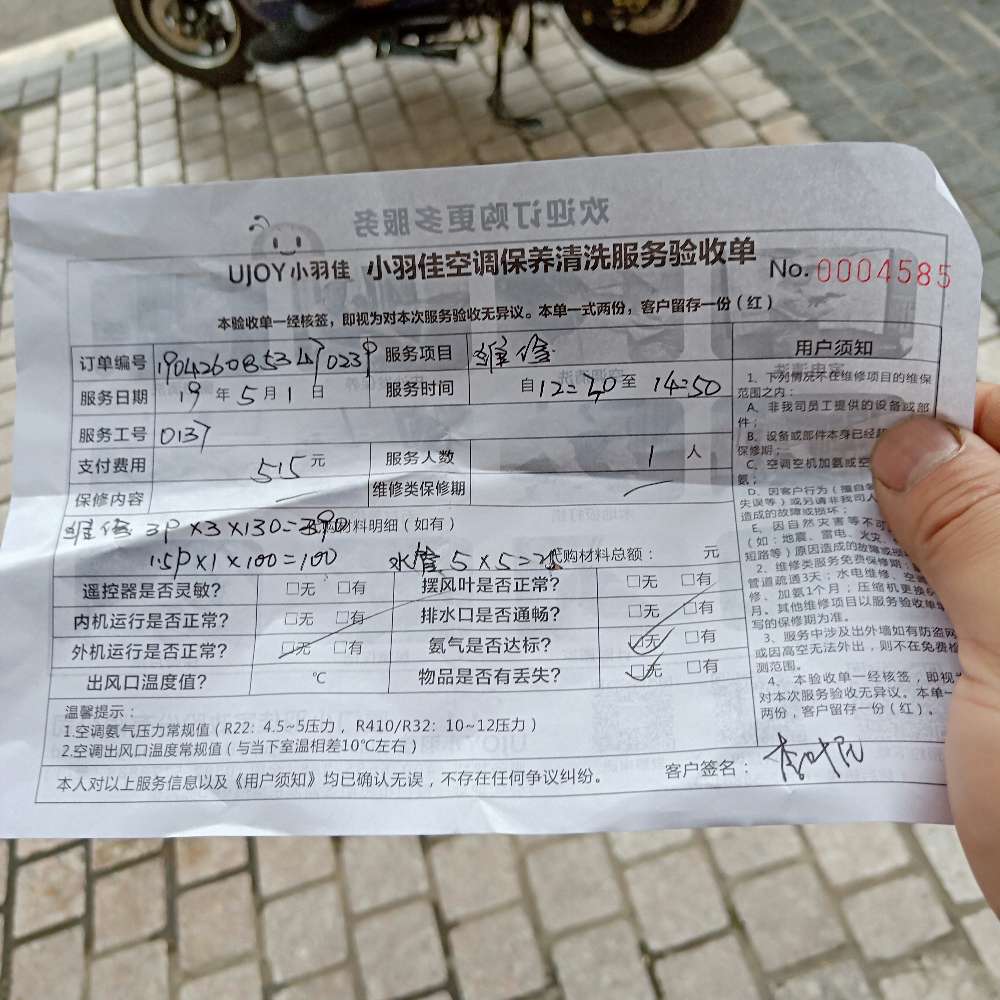 欢迎订购更多服务
UJOY小羽佳 小羽佳空调保养清洗服务验收单 No. 0004585
本验收单一经核签，即视为对本次服务验收无异议。本单一式两份，客户留存一份（红）
订单编号 服务项目 维修
服务日期 19年5月1日 服务时间 自12:40至14:50
服务工号 0137
支付费用 515元 服务人数 1人
保修内容 维修类保修期
维修 3P×3×130=390 材料明细（如有）
1.5P×1×100=100 水管5×5=25 代购材料总额： 元
遥控器是否灵敏？ □无 □有 摆风叶是否正常？ □无 □有
内机运行是否正常？ □无 □有 排水口是否通畅？ □无 □有
外机运行是否正常？ □无 □有 氨气是否达标？ □无 □有
出风口温度值？ ℃ 物品是否有丢失？ □无 □有
温馨提示：
1.空调氨气压力常规值（R22：4.5~5压力，R410/R32：10~12压力）
2.空调出风口温度常规值（与当下室温相差10℃左右）
本人对以上服务信息以及《用户须知》均已确认无误，不存在任何争议纠纷。 客户签名：
用户须知
1、下列情况不在维修项目的维保
范围之内：
A、非我司员工提供的设备或部
件；
B、设备或部件本身已经超
保修期；
C、空调空机加氨或空
氨；
D、因客户行为（擅自
失误等）或另请非我司人
造成的故障或损坏；
E、因自然灾害等不可
（如：地震、雷电、火灾、
短路等）原因造成的故障或损
2、维修类服务免费保修期：
管道疏通3天；水电维修、空
修、加氨1个月；压缩机更换
月。其他维修项目以服务验收单
写的保修期为准。
3、服务中涉及出外墙如有防盗网
或因高空无法外出，则不在免费检
测范围。
4、本验收单一经核签，即视为
对本次服务验收无异议。本单一
两份，客户留存一份（红）。